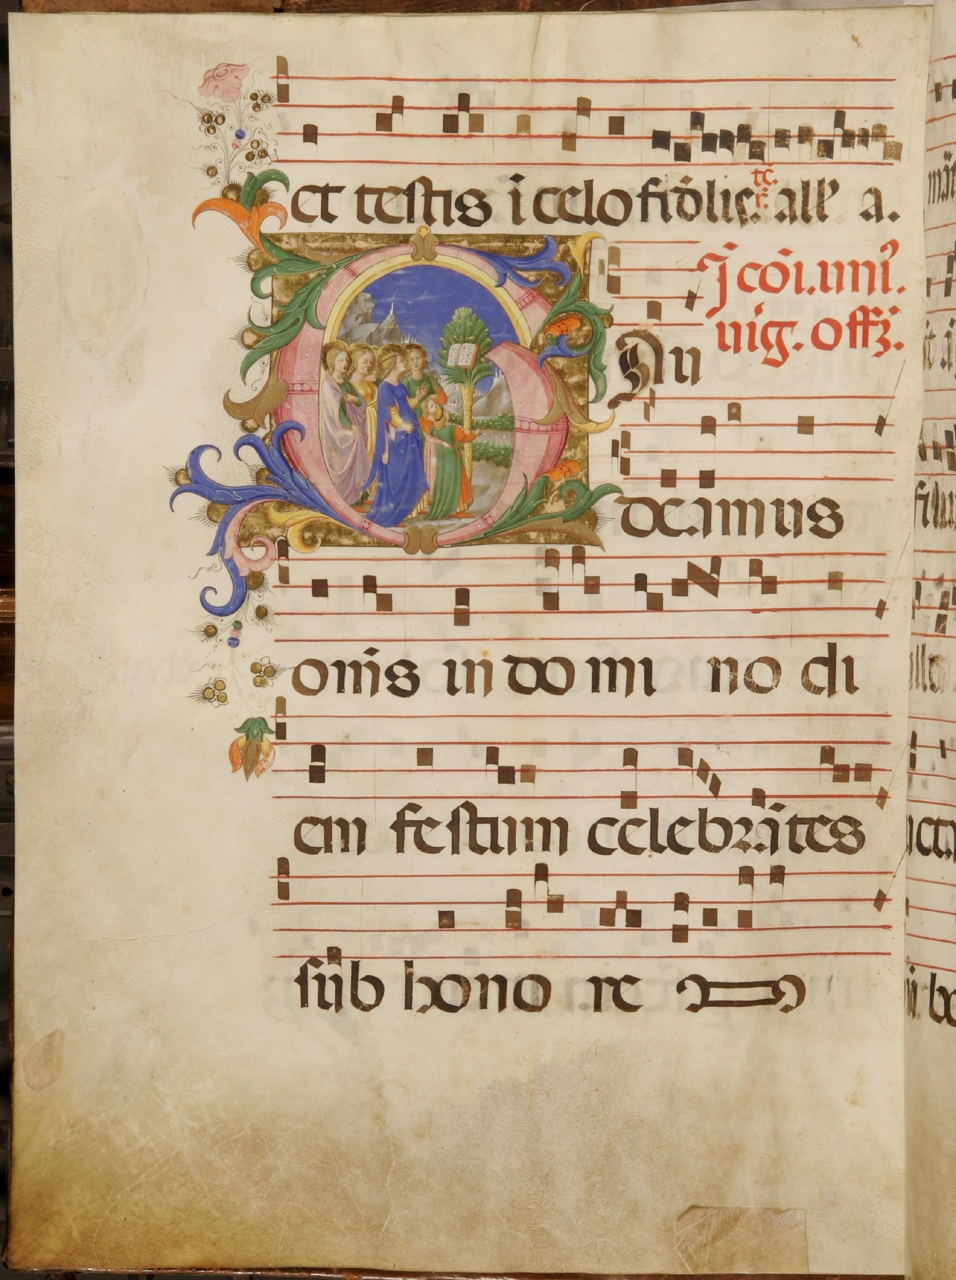 et testis i celo fidelis. all' a.
tc.
J cōi. uni'
uig. offz.
Au
deamus
om̄s in domi no di
em festum celebrātes
sub hono re